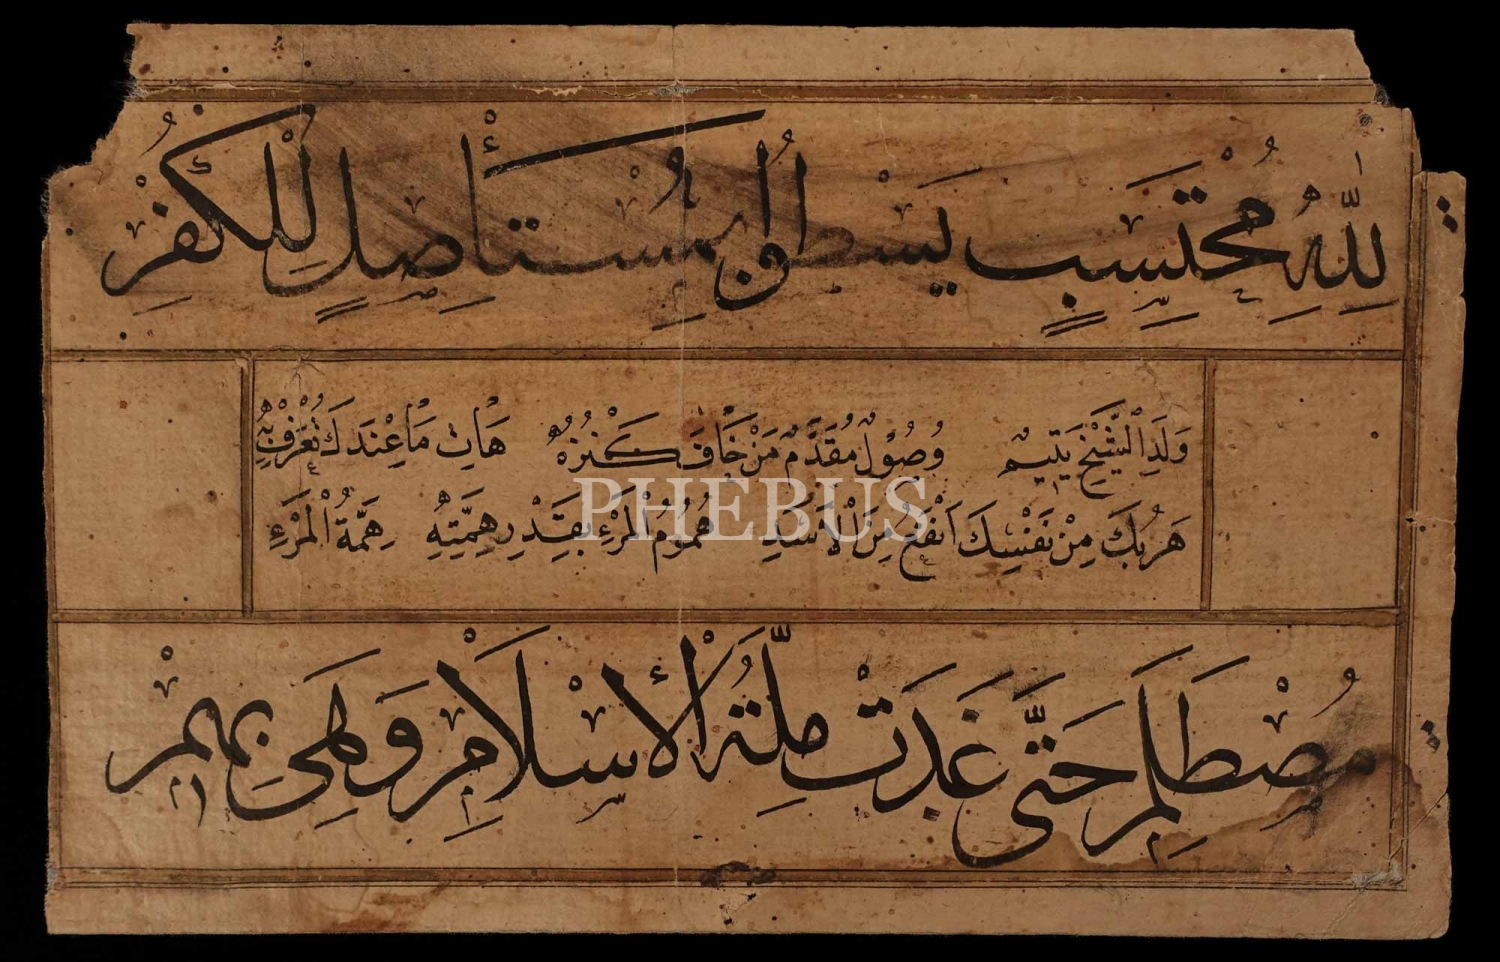 لِلّٰهِ مُحْتَسِبٍ يَسْطُوا بِمُسْتَأْصِلٍ لِلْكُفْرِ
وَلَدِ الشَّيْخِ يَتِيمٌ وُصُوْلٌ مُقَدَّمٌ مَنْ خَافَ كَنْزُهُ هَاتِ مَا عِنْدَكَ تُعْرَفْ بِهِ
هَرُبُكَ مِنْ نَفْسِكَ اَنْفَعُ مِنَ الْاَسَدِ هُمُوُمُ الْمَرْءِ بِقَدْرِ هِمَّتِهِ هِمَّةُ الْمَرْءِ
PHEBUS
مُصْطَلَمِ حَتّٰى غَدَتْ مِلَّةُ الْأِسْلَامِ وَهِىَ بِهِمْ